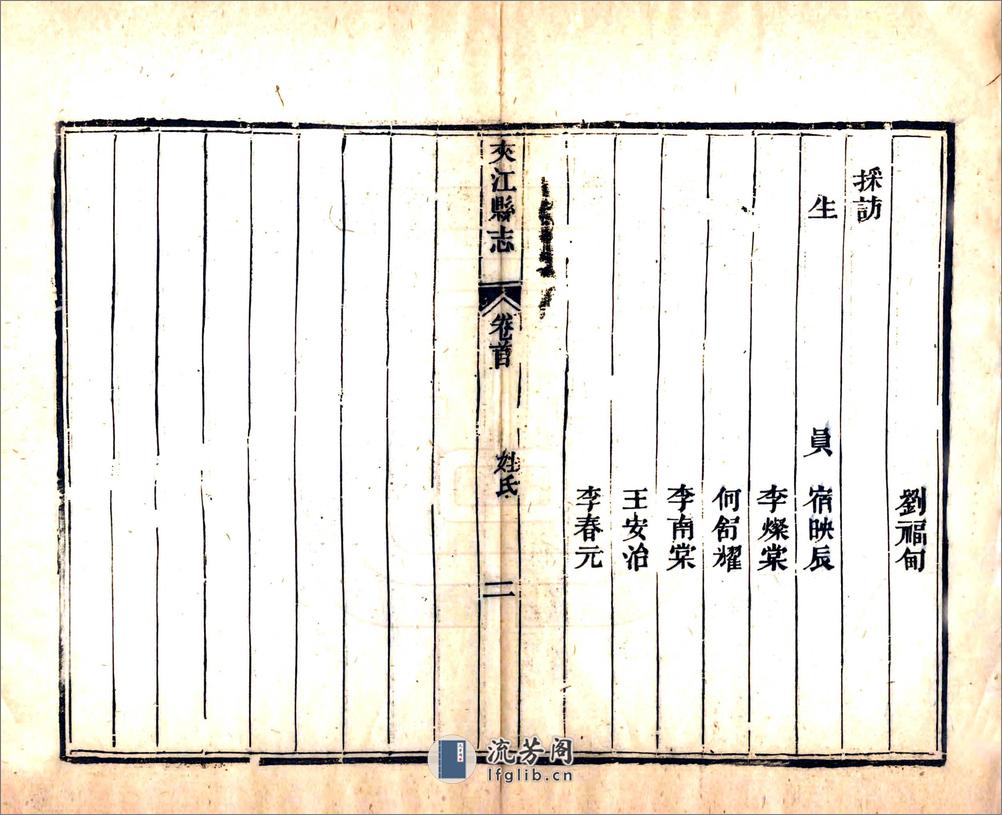 劉福甸
採訪
生員 宿映辰
李燦棠
何㑹耀
李南棠
王安治
李春元
夾江縣志 卷首 姓氏 二
流芳阁
lfglib.cn